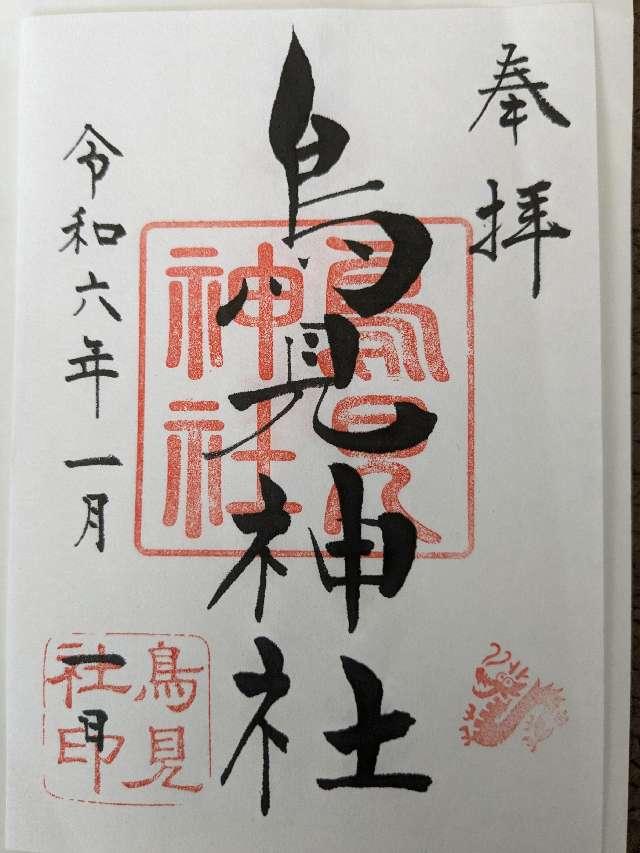 奉拝
鳥見神社
鳥見
神社
令和六年一月
一日
鳥見
社印